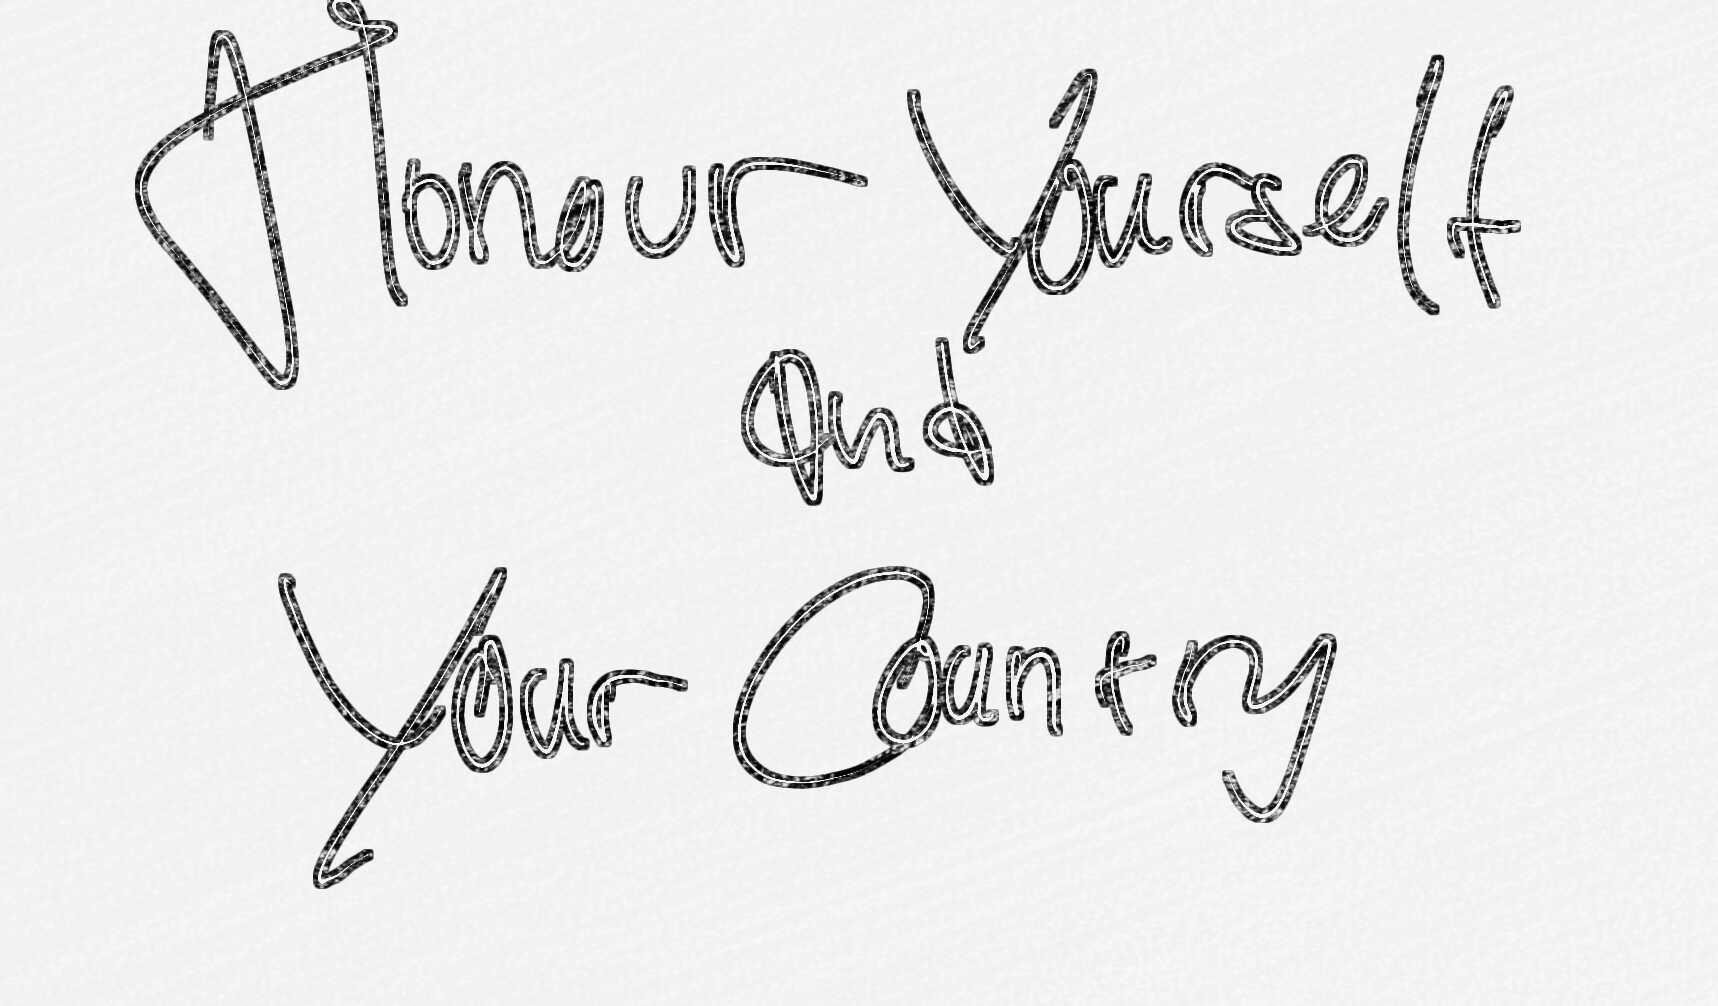 Honour Yourself
And
Your Country